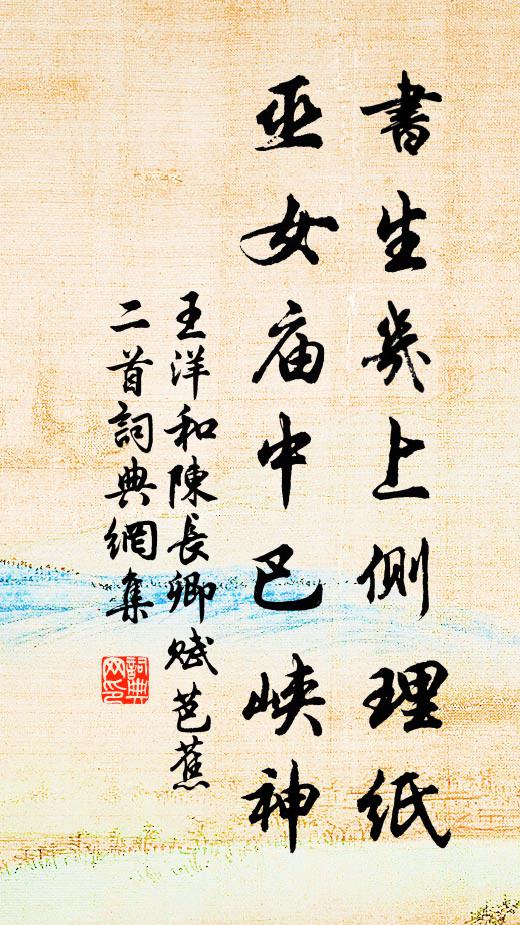 書生幾上側理紙
巫女庙中巴峽神
王洋和陳長卿賦芭蕉
二首詞典網集
詞典網印